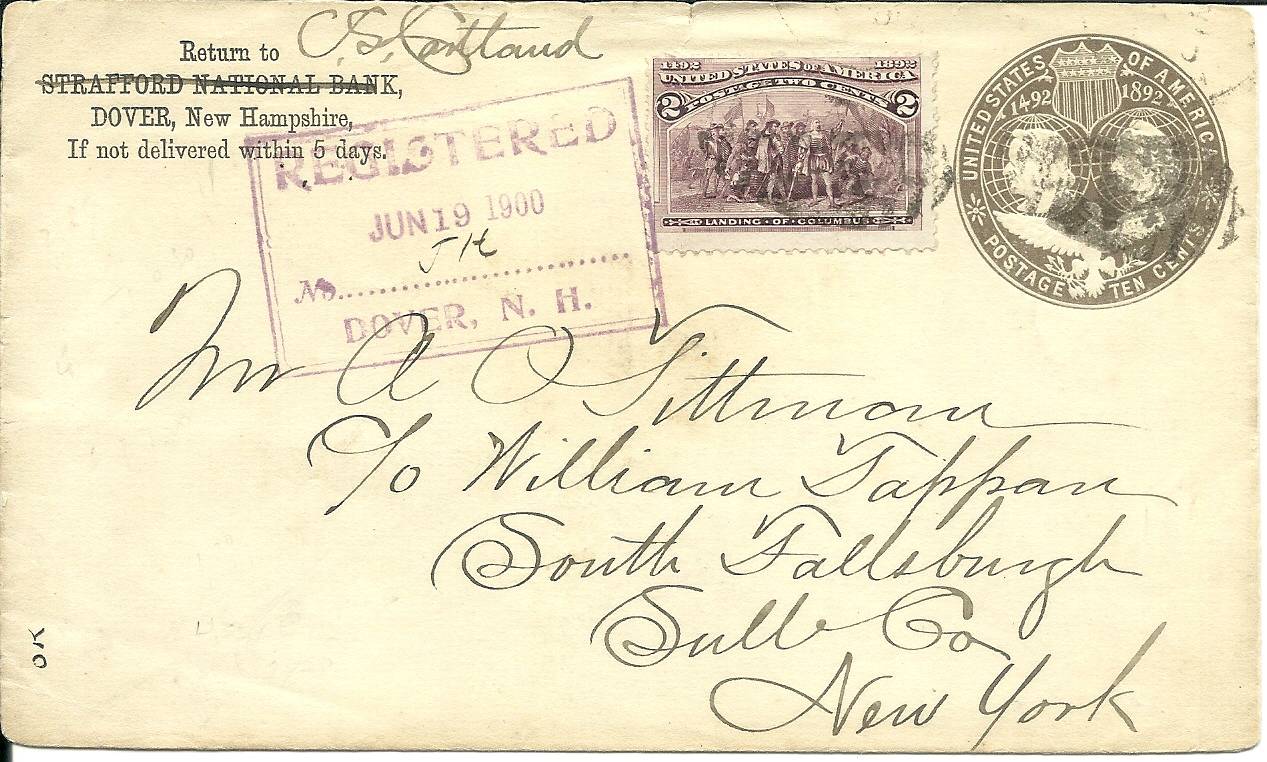 Return to
STRAFFORD NATIONAL BANK,
DOVER, New Hampshire,
If not delivered within 5 days.
REGISTERED
JUN 19 1900
No.
DOVER, N. H.
1492 1892
UNITED STATES OF AMERICA
2 POSTAGE TWO CENTS 2
LANDING · OF · COLUMBUS
UNITED STATES OF AMERICA
1492 1892
POSTAGE TEN CENTS
Mr A O Tittman
C/o William Tappan
South Fallsburgh
Sull Co
New York
OK